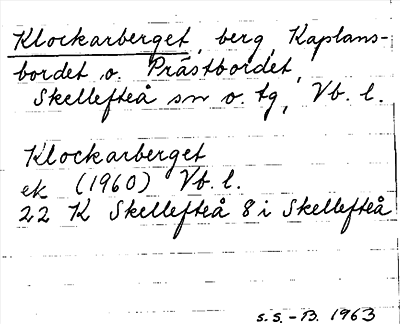 Klockarberget, berg, Kaplans-
bordet o. Prästbordet,
Skellefteå sn o. tg, Vb. l.
Klockarberget
ek (1960) Vb. l.
22 K Skellefteå 8 i Skellefteå
S.S. - B. 1963